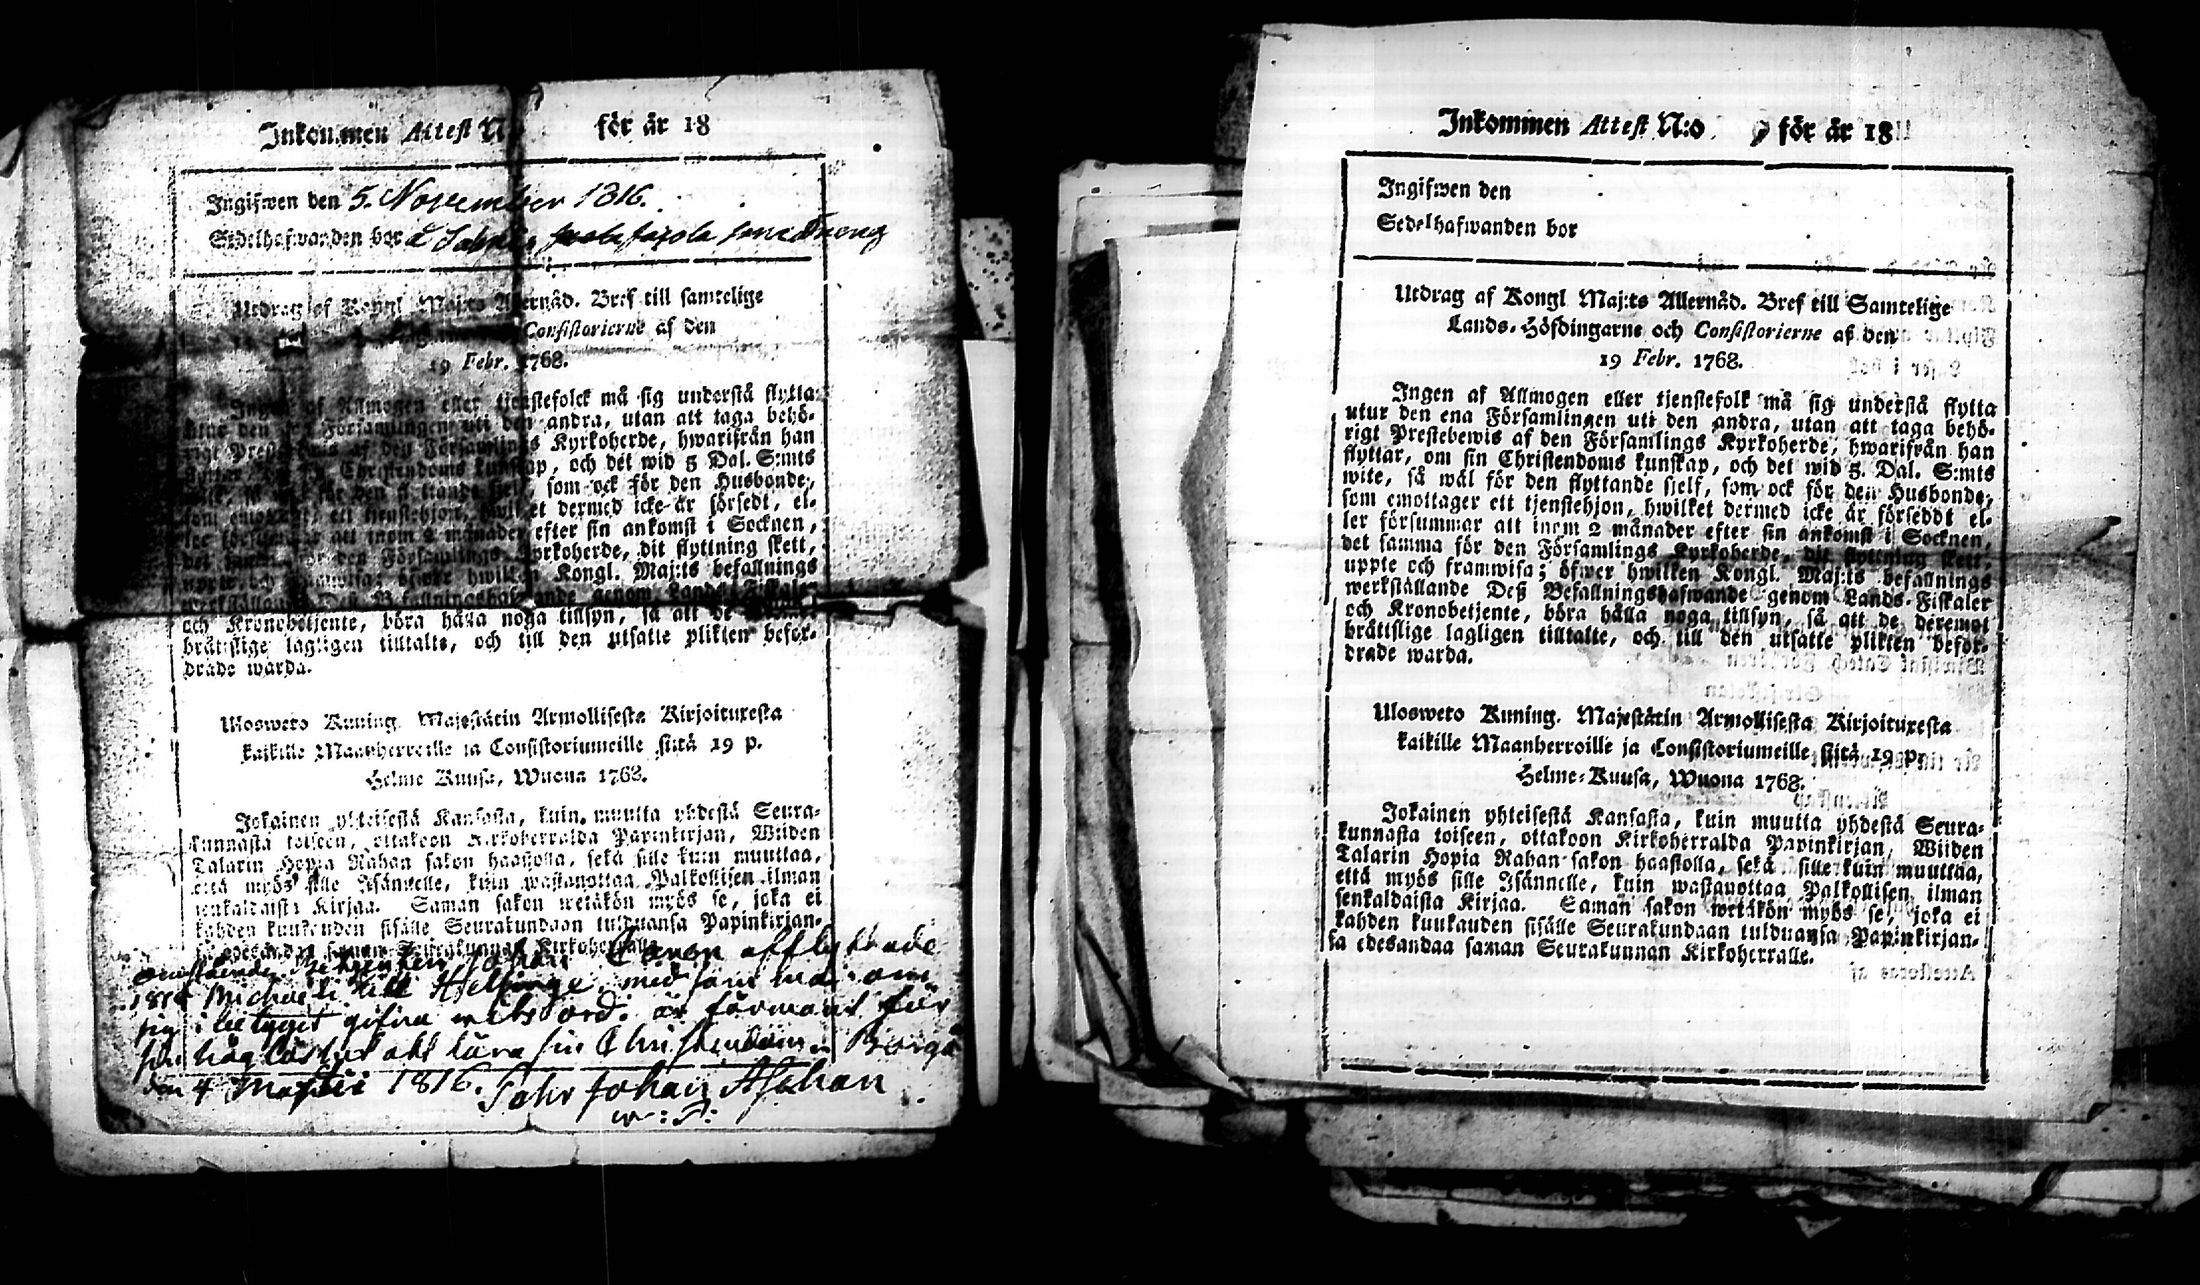 Inkommen Attest N:o för är 18
Ingifwen den 5. November 1816.
Sedelhafwanden bor å
Utdrag af Kongl Maj:ts Allernåd. Bref till samtelige
Consistorierne af den
19 Febr. 1768.
Ingen af Allmogen eller tjenstefolck må sig understå flytta
utur den ena Församlingen uti den andra, utan att taga behö-
rigt Prestebewis af den Församlings Kyrkoherde, hwarifrån han
flyttar, om sin Christendoms kunskap, och det wid 5 Dal. S:mts
wite, så wäl för den flyttande sjelf, som ock för den Husbonde,
som emottager ett tjenstehjon, hwilket dermed icke är försedt, el-
ler försummar att inom 2 månader efter sin ankomst i Socknen,
det samma för den Församlings Kyrkoherde, dit flyttning skett,
uppte och framwisa; öfwer hwilken Kongl. Maj:ts befallnings
werkställande Deß Befallningshafwande genom Lands-Fiskaler
och Kronobetjente, böra hålla noga tillsyn, så att de
bråttslige lagligen tilltalte, och till den utsatte plikten befor-
drade warda.
Ulosweto Kuning. Majestätin Armollisesta Kirjoituxesta
kaikille Maanherroille ja Consistoriumeille siitä 19 p.
Helme Kuusa, Wuona 1768.
Jokainen yhteisestä Kansasta, kuin muutta yhdestä Seura-
kunnasta toiseen, ottakoon Kirkoherralda Papinkirjan, Wiiden
Talarin Hopia Rahan sakon haastolla, sekä sille kuin muuttaa,
että myös sille Isännelle, kuin wastanottaa Palkollisen ilman
senkaldaista Kirjaa. Saman sakon wetäkön myös se, joka ei
kahden kuukauden sisälle Seurakundaan tulduansa Papinkirjan-
sa edesandaa saman Seurakunnan Kirkoherralle.
Johan afflyttade
Michaeli till Helsinge med
i betyget gifna är förmant för
att lära sin Christendom. Borgå
den 4 1816. Johan
Inkommen Attest N:o för är 18
Ingifwen den
Sedelhafwanden bor
Utdrag af Kongl Maj:ts Allernåd. Bref till Samtelige
Lands-Höfdingarne och Consistorierne af den
19 Febr. 1768.
Ingen af Allmogen eller tjenstefolk må sig understå flytta
utur den ena Församlingen uti den andra, utan att taga behö-
rigt Prestebewis af den Församlings Kyrkoherde, hwarifrån han
flyttar, om sin Christendoms kunskap, och det wid 5. Dal. S:mts
wite, så wäl för den flyttande sjelf, som ock för den Husbonde,
som emottager ett tjenstehjon, hwilket dermed icke är förseddt el-
ler försummar att inom 2 månader efter sin ankomst i Socknen,
det samma för den Församlings Kyrkoherde, dit flyttning skett,
uppte och framwisa; öfwer hwilken Kongl. Maj:ts befallnings
werkställande Deß Befallningshafwande genom Lands-Fiskaler
och Kronobetjente, böra hålla noga tillsyn, så att de deremot
bråttslige lagligen tilltalte, och till den utsatte plikten befor-
drade warda.
Ulosweto Kuning. Majestätin Armollisesta Kirjoituxesta
kaikille Maanherroille ja Consistoriumeille siitä 19 p.
Helme-Kuusa, Wuona 1768.
Jokainen yhteisestä Kansasta, kuin muutta yhdestä Seura-
kunnasta toiseen, ottakoon Kirkoherralda Papinkirjan, Wiiden
Talarin Hopia Rahan sakon haastolla, sekä sille kuin muuttaa,
että myös sille Isännelle, kuin wastanottaa Palkollisen ilman
senkaldaista Kirjaa. Saman sakon wetäkön myös se, joka ei
kahden kuukauden sisälle Seurakundaan tulduansa Papinkirjan-
sa edesandaa saman Seurakunnan Kirkoherralle.